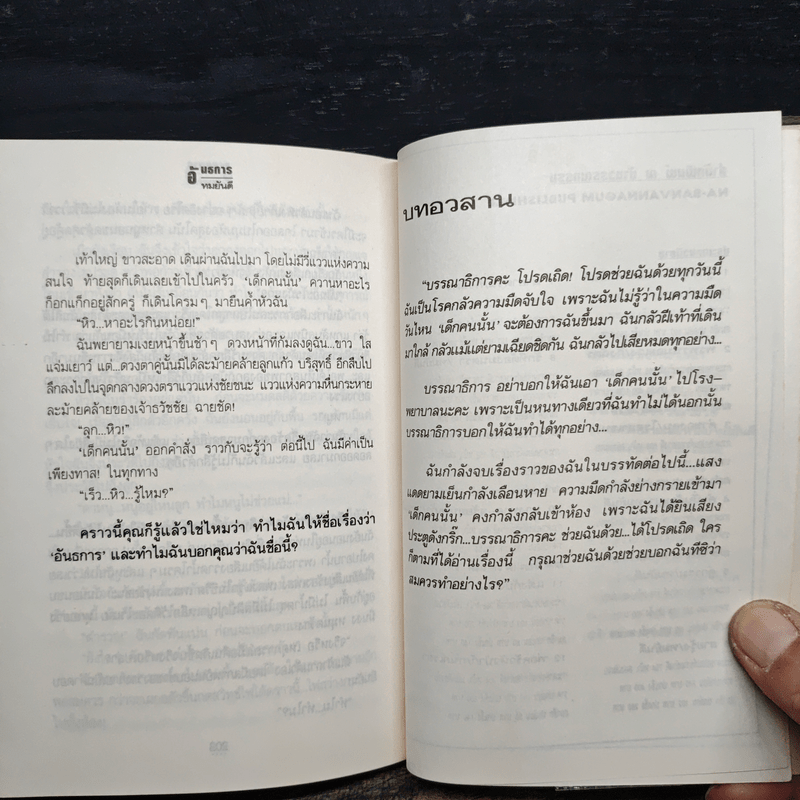 อันธการ
ทมยันตี
เท้าใหญ่ ขาวสะอาด เดินผ่านฉันไปมา โดยไม่มีวี่แววแห่งความ
สนใจ ท้ายสุดก็เดินเลยเข้าไปในครัว ‘เด็กคนนั้น’ ควานหาอะไร
ก็อกแก็กอยู่สักครู่ ก็เดินโครมๆ มายืนค้ำหัวฉัน
“หิว...หาอะไรกินหน่อย!”
ฉันพยายามเงยหน้าขึ้นช้าๆ ดวงหน้าที่ก้มลงดูฉัน...ขาว ใส
แจ่มเยาว์ แต่...ดวงตาคู่นั้นมิได้ละม้ายคล้ายลูกแก้ว บริสุทธิ์ อีกสืบไป
ลึกลงไปในจุดกลางดวงตราแววแห่งชัยชนะ แววแห่งความหื่นกระหาย
ละม้ายคล้ายของเจ้าธวัชชัย ฉายชัด!
“ลูก...หิว!”
‘เด็กคนนั้น’ ออกคำสั่ง ราวกับจะรู้ว่า ต่อนี้ไป ฉันมีค่าเป็น
เพียงทาส! ในทุกทาง
“เร็ว...หิว...รู้ไหม?”
คราวนี้คุณก็รู้แล้วใช่ไหมว่า ทำไมฉันให้ชื่อเรื่องว่า
‘อันธการ’ และทำไมฉันบอกคุณว่าฉันชื่อนี้?
บทอวสาน
“บรรณาธิการคะ โปรดเถิด! โปรดช่วยฉันด้วยทุกวันนี้
ฉันเป็นโรคกลัวความมืดจับใจ เพราะฉันไม่รู้ว่าในความมืด
วันไหน ‘เด็กคนนั้น’ จะต้องการฉันขึ้นมา ฉันกลัวฝีเท้าที่เดิน
มาใกล้ กลัวแม้แต่ยามเฉียดชิดกัน ฉันกลัวไปเสียหมดทุกอย่าง...
บรรณาธิการ อย่าบอกให้ฉันเอา ‘เด็กคนนั้น’ ไปโรง–
พยาบาลนะคะ เพราะเป็นหนทางเดียวที่ฉันทำไม่ได้นอกนั้น
บรรณาธิการบอกให้ฉันทำได้ทุกอย่าง...
ฉันกำลังจบเรื่องราวของฉันในบรรทัดต่อไปนี้...แสง
แดดยามเย็นกำลังเลือนหาย ความมืดกำลังย่างกรายเข้ามา
‘เด็กคนนั้น’ คงกำลังกลับเข้าห้อง เพราะฉันได้ยินเสียง
ประตูดังกริ๊ก...บรรณาธิการคะ ช่วยฉันด้วย...ได้โปรดเถิด ใคร
ก็ตามที่ได้อ่านเรื่องนี้ กรุณาช่วยฉันด้วยช่วยบอกฉันทีซิว่า
สมควรทำอย่างไร?”